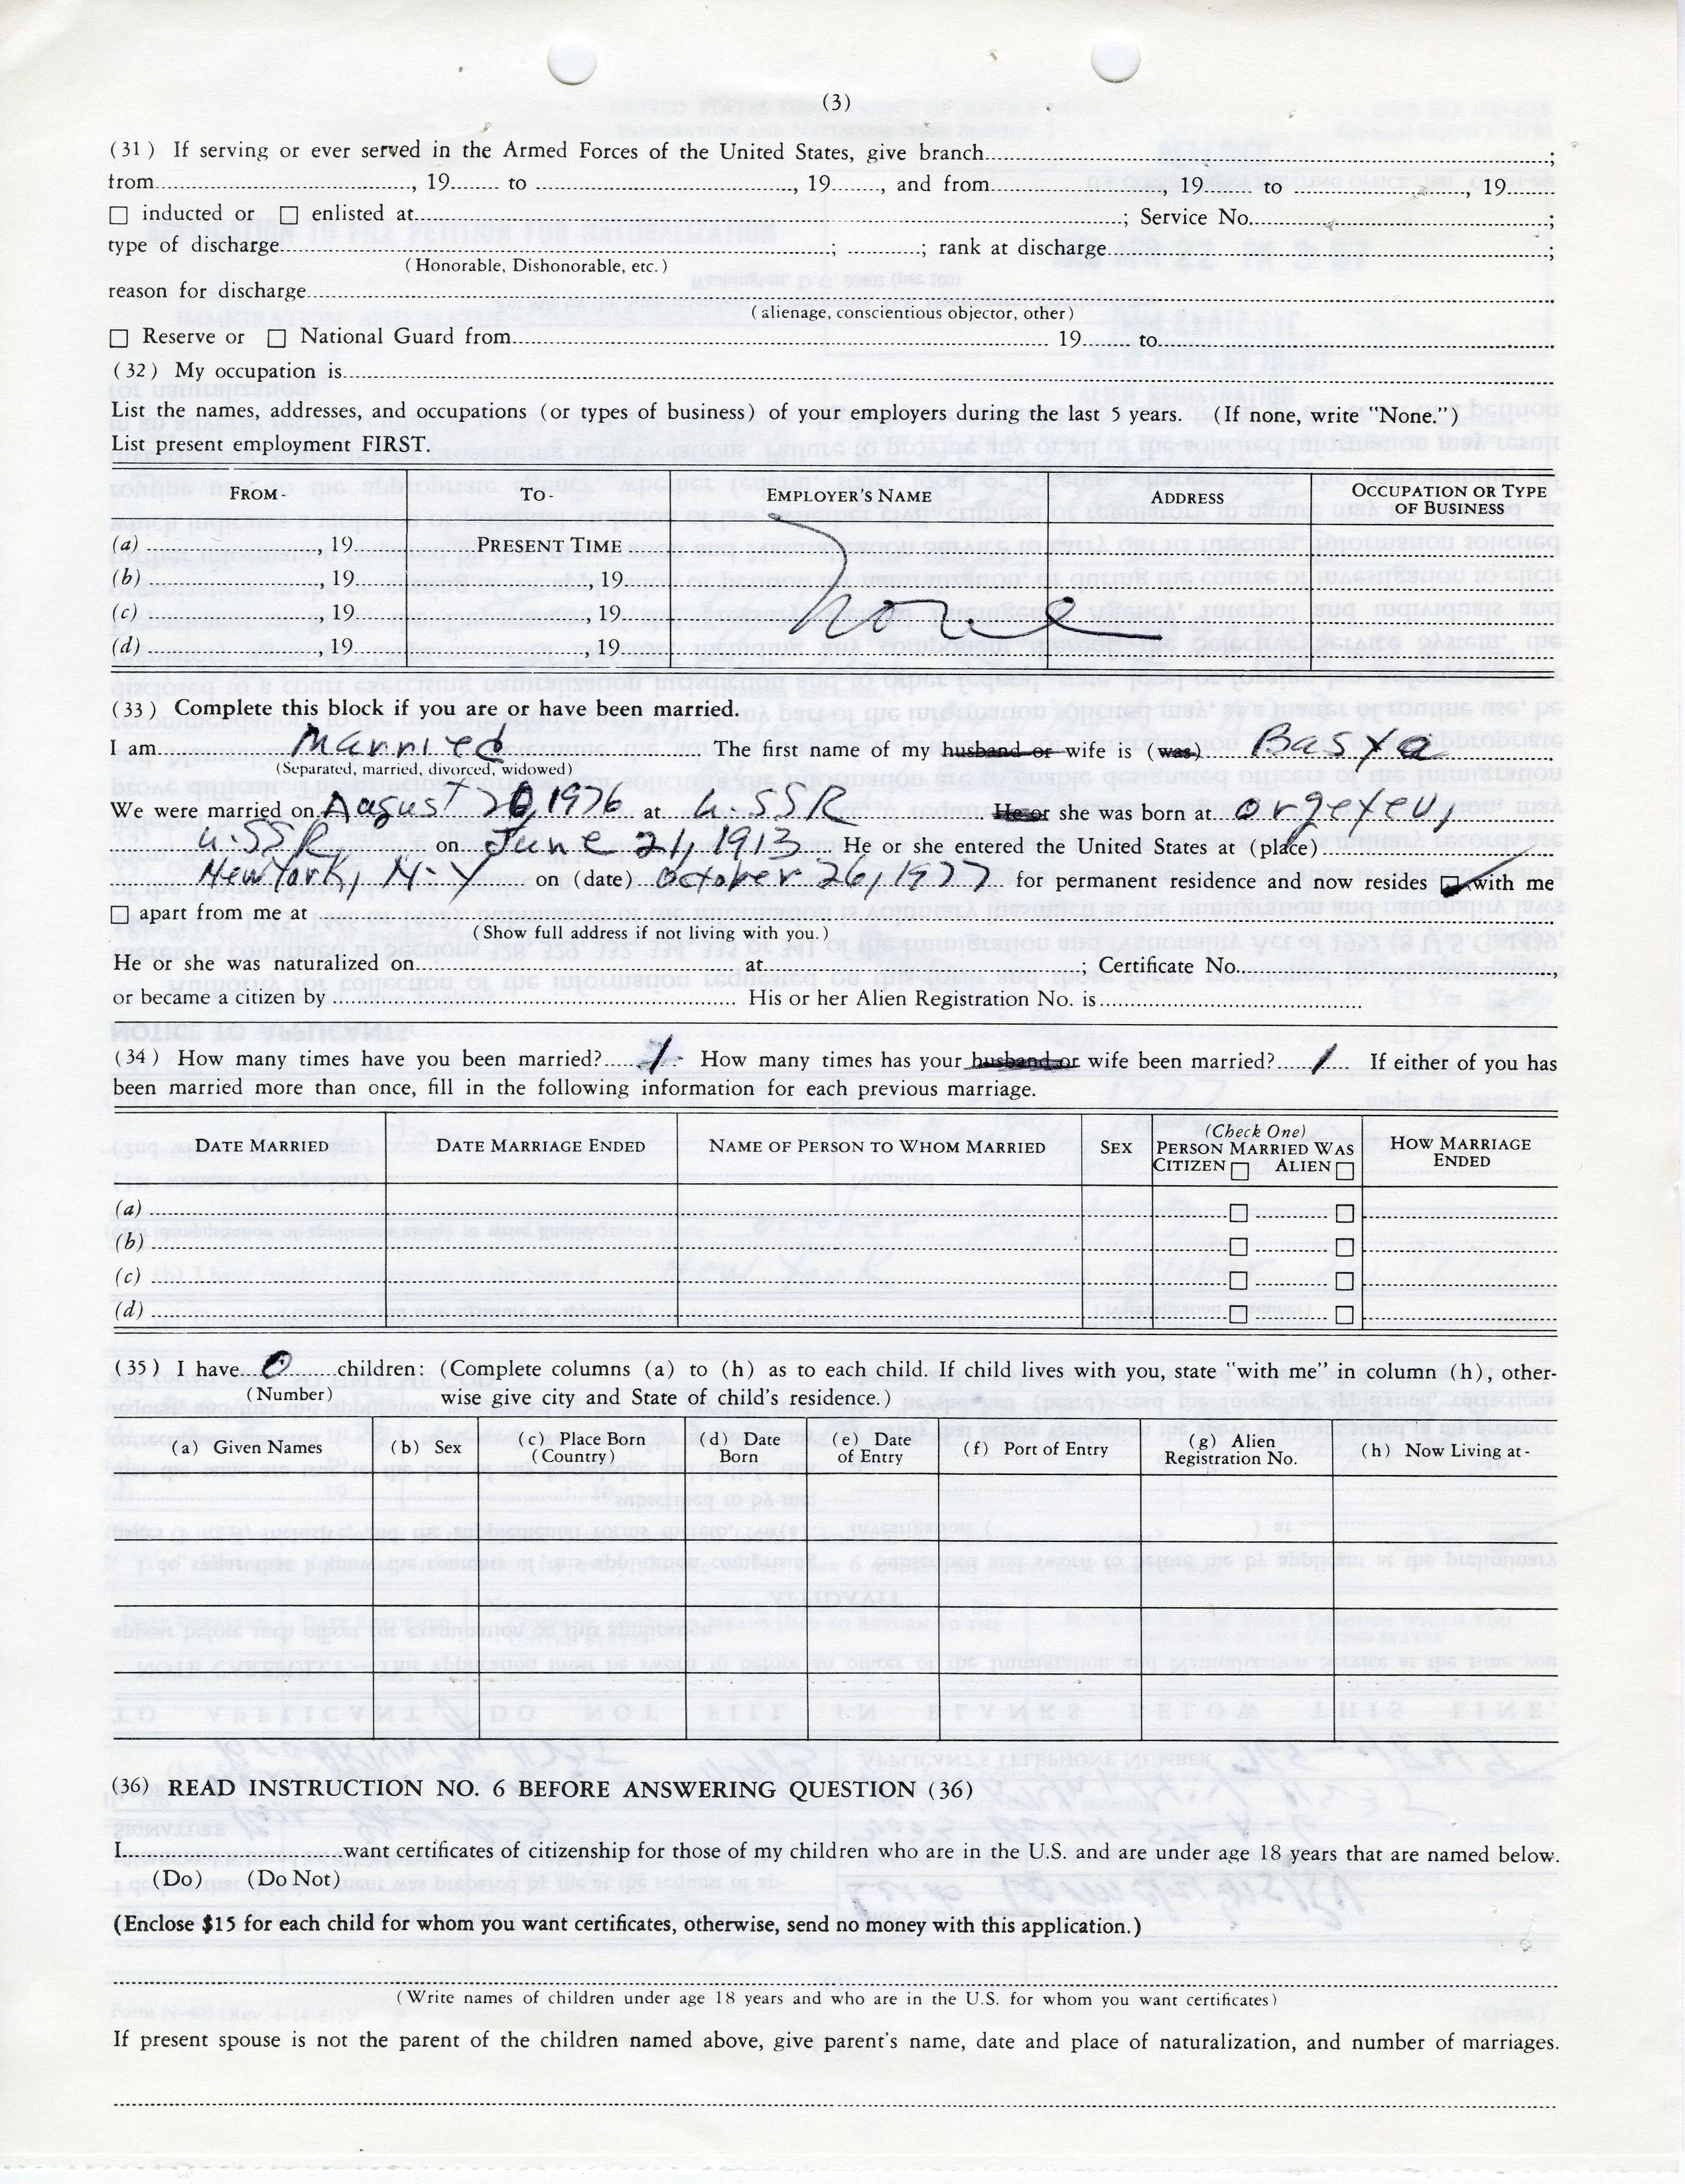 (3)
(31) If serving or ever served in the Armed Forces of the United States, give branch ;
from , 19 to , 19 , and from , 19 to , 19
☐ inducted or ☐ enlisted at ; Service No. ;
type of discharge ; ; rank at discharge ;
(Honorable, Dishonorable, etc.)
reason for discharge
(alienage, conscientious objector, other)
☐ Reserve or ☐ National Guard from 19 to
(32) My occupation is
List the names, addresses, and occupations (or types of business) of your employers during the last 5 years. (If none, write "None.")
List present employment FIRST.
FROM- TO- EMPLOYER'S NAME ADDRESS OCCUPATION OR TYPE OF BUSINESS
(a) , 19 PRESENT TIME
(b) , 19 , 19
(c) , 19 , 19 None
(d) , 19 , 19
(33) Complete this block if you are or have been married.
I am Married The first name of my husband or wife is (was) Basya
(Separated, married, divorced, widowed)
We were married on Aagust 20, 1976 at U.SSR He or she was born at orgeyev,
U.SSR on June 21, 1913 He or she entered the United States at (place)
New York, N-Y on (date) October 26, 1977 for permanent residence and now resides ☑ with me
☐ apart from me at
(Show full address if not living with you.)
He or she was naturalized on at ; Certificate No. ,
or became a citizen by His or her Alien Registration No. is
(34) How many times have you been married? 1 How many times has your husband or wife been married? 1 If either of you has
been married more than once, fill in the following information for each previous marriage.
DATE MARRIED DATE MARRIAGE ENDED NAME OF PERSON TO WHOM MARRIED SEX (Check One) PERSON MARRIED WAS CITIZEN ☐ ALIEN ☐ HOW MARRIAGE ENDED
(a) ☐ ☐
(b) ☐ ☐
(c) ☐ ☐
(d) ☐ ☐
(35) I have 0 children: (Complete columns (a) to (h) as to each child. If child lives with you, state "with me" in column (h), other-
(Number) wise give city and State of child's residence.)
(a) Given Names (b) Sex (c) Place Born (Country) (d) Date Born (e) Date of Entry (f) Port of Entry (g) Alien Registration No. (h) Now Living at-
(36) READ INSTRUCTION NO. 6 BEFORE ANSWERING QUESTION (36)
I want certificates of citizenship for those of my children who are in the U.S. and are under age 18 years that are named below.
(Do) (Do Not)
(Enclose $15 for each child for whom you want certificates, otherwise, send no money with this application.)
(Write names of children under age 18 years and who are in the U.S. for whom you want certificates)
If present spouse is not the parent of the children named above, give parent's name, date and place of naturalization, and number of marriages.